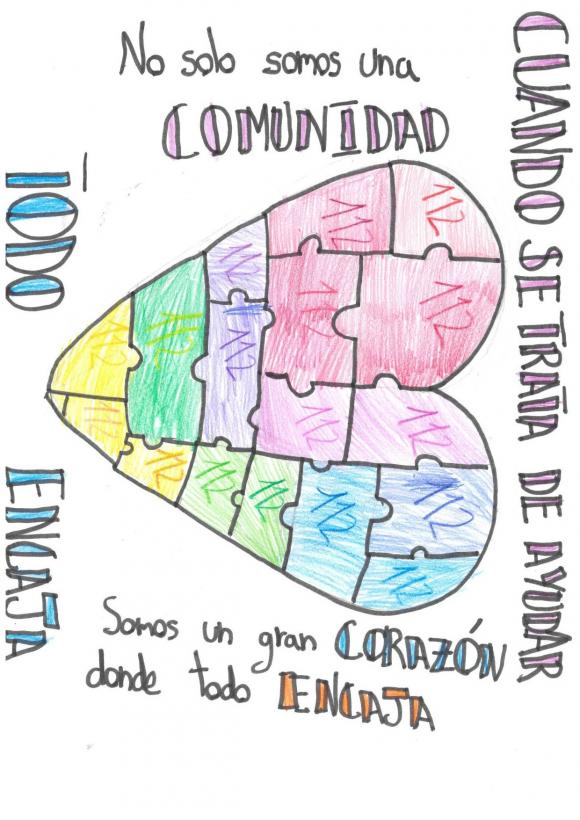 CUANDO SE TRATA DE AYUDAR
No solo somos una
COMUNIDAD
112
112
112
112
112
112
112
112
112
112
112
112
112
112
112
112
112
Somos un gran CORAZÓN
donde todo ENCAJA
TODO ENCAJA